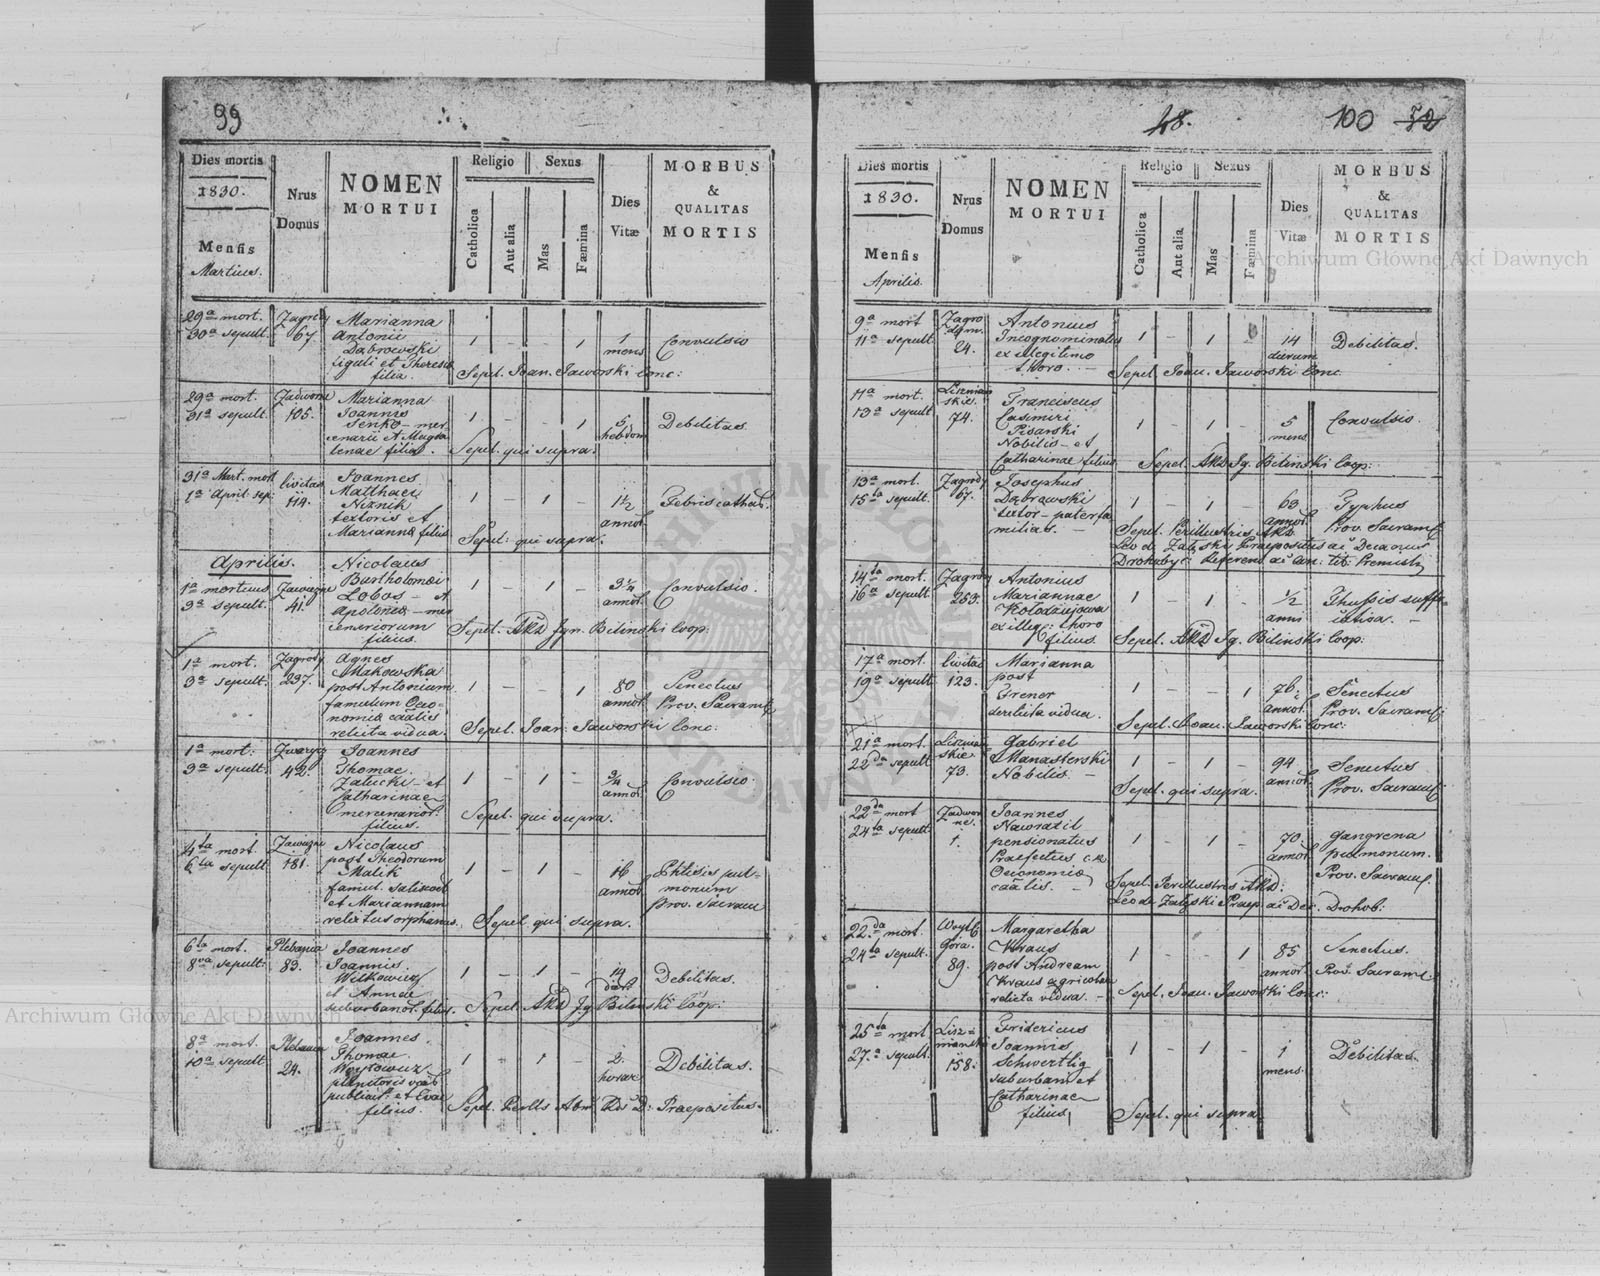 99
Dies mortis
1830.
Mensis
Martius.
Nrus
Domus
NOMEN
MORTUI
Religio
Sexus
Catholica
Aut alia
Mas
Fæmina
Dies
Vitæ
MORBUS
&
QUALITAS
MORTIS
29a mort.
30a sepult.
Zagrody
67
Marianna
Antonii
Dąbrowski
figuli et Theresia
filia.
1 - - 1
1
mens
Convulsio
Sepel. Joan. Jaworski Conc:
29a mort.
31a sepult.
Zadworne
105.
Marianna
Joannis
Senko - mer-
cenarii et Magda
lenae filia.
1 - - 1
5
hebdom
Debilitas
Sepel. qui supra.
31a Mart. mort
1a April. sep:
Civitas
114.
Joannes
Matthaei
Niznik
textoris et
Marianna filius
1 - 1 -
1 1/2
annor.
Febris cathar.
Sepel: qui supra.
Aprilis.
1a mortuus
3a sepult.
Zawizne
41.
Nicolaus
Bartholomei
Lobos - et
Apolonia - mer
cenariorum
filius.
1 - 1 -
3 1/4
annor.
Convulsio.
Sepel. Ign. Bilinski Coop:
1a mort.
3a sepult.
Zagrody
237.
Agnes
Makowska
post Antonium
famulum Oeco-
nomia caalis
relicta vidua.
1 - - 1
80
annor.
Senectus
Prov. Sacram
Sepel. Joan: Jaworski Conc:
1a mort:
3a sepult:
42.
Joannes
Thomae
Załucki - et
Catharinae
mercenarior:
filius.
1 - 1 -
3/4
annor.
Convulsio
Sepel. qui supra.
4ta mort.
6ta sepult
Zawizne
181.
Nicolaus
post Theodorum
Malik
famul. saliscod
et Mariannam
relictus orphanus.
1 - 1 -
16
annor.
Phtisis pul-
monum
prov. Sacram
Sepel qui supra.
6ta mort.
8va sepult:
Plebania
83.
Joannes
Joannis
Witkowicz
et Annae
suburbanor. filius.
1 - 1 -
14
dier
Debilitas.
Sepel. Ig. Bilinski Coop:
8a mort.
10a sepult
Plebania
24.
Joannes
Thomae
Woytowicz
et Evae
filius.
1 - 1 -
2
horae
Debilitas.
Sepel. Praepositus.
48.
100 52
Dies mortis
1830.
Mensis
Aprilis.
Nrus
Domus
NOMEN
MORTUI
Religio
Sexus
Catholica
Aut alia
Mas
Fæmina
Dies
Vitæ
MORBUS
&
QUALITAS
MORTIS
9a mort
11a sepult
24.
Antonius
Incognominatus
ex illegitimo
thoro.
1 - 1
14
dierum
Debilitas.
Sepel Joan. Jaworski Conc
11a mort.
13a sepult
Liszniań
skie.
74.
Franciscus
Casimiri
Pisarski
Nobilis - et
Catharinae filius
1 - 1 -
5
mens
Convulsio.
Sepel. Ig. Bilinski Coop:
13a mort.
15ta sepult.
Zagrody
67.
Josephus
Dąbrowski
textor - paterfa
milias.
1 - 1 -
63
annor.
Typhus
Prov. Sacram
Sepel Perillustris
Leo de Załęski Praepositus ac Decanus
Drohobyc. Referend ac Can: tit: Premisl:
14ta mort.
16a sepult
Zagrody
253.
Antonius
Mariannae
Kołodziejowa
ex illeg: thoro
filius.
1 - 1 -
1/2
anni
Thussis suffo-
cativa.
Sepel. Ig. Bilinski Coop:
17a mort.
19a sepult
Civitas
123.
Marianna
post
Grener
derelicta vidua.
1 - - 1
76
annor.
Senectus
Prov. Sacram:
Sepel. Joan. Jaworski Conc:
21a mort.
22da sepult
Liszniań
skie
73.
Gabriel
Manasterski
Nobilis. -
1 - 1 -
94
annor.
Senectus
Prov. Sacram:
Sepel. qui supra.
22da mort
24ta sepult
Zadwor
ne.
1.
Joannes
Nawratil
pensionatus
Praefectus
Oeconomia
caalis. -
1 - 1 -
70
annor.
gangrena
pulmonum.
Prov. Sacram.
Sepel. Perillustris
Leo de Załęski Praep. ac Dec. Drohob:
22da mort.
24ta sepult.
Woytos
Gora.
89.
Margaretha
Kraus
post Andream
Kraus agricolam
relicta vidua. -
1 - - 1
85
annor.
Senectus.
Prov. Sacram.
Sepel. Joan. Jaworski Conc:
25ta mort
27.a sepult.
158.
Fridericus
Joannis
Schwertlig
suburbani et
Catharinae
filius
1 - 1 -
1
mens
Debilitas.
Sepel. qui supra
Archiwum Główne Akt Dawnych
Archiwum Główne Akt Dawnych
ARCHIWUM GŁÓWNE AKT DAWNYCH